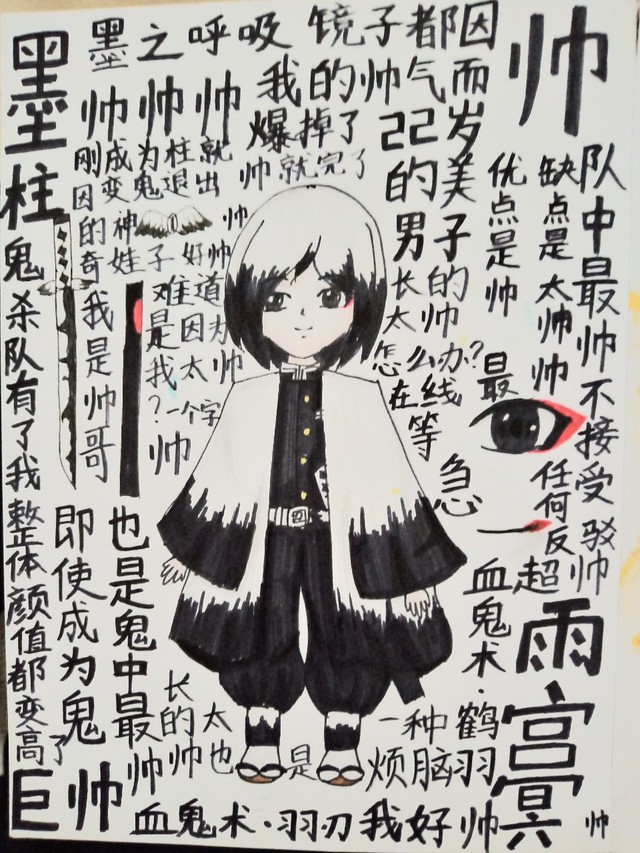 墨柱
墨之呼吸
镜子都因
我的帅气而
爆掉了
帅
帅帅帅
刚成为柱就
因变鬼退出
的神
奇娃子
帅就完了
22岁
的美
男子
优点是帅
缺点是太帅
队中最帅不接受驳
任何反
帅
帅
好帅
难道
是因为
我太帅
?一个字
帅
我是帅哥
鬼杀队有了我整体颜值都变高了
即使成为鬼
也是鬼中最
帅
巨帅
长的
太帅
怎么办?
在线等
急
最
帅
超帅
血鬼术·鹤羽
雨宫冥
长的太帅也是一种烦脑
血鬼术·羽刃
我好帅
帅